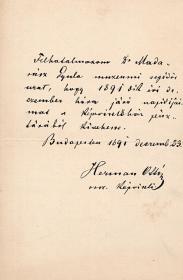 Felhatalmazom Dr Mada-
rász Gyula muzeumi segédőr
urat, hogy 1891 dik évi de-
czember hóra járó napidíja-
mat a képviselőház pénz-
tárából kivehesse.
Budapesten 1891 deczemb. 23.
Herman Ottó
orsz. képviselő